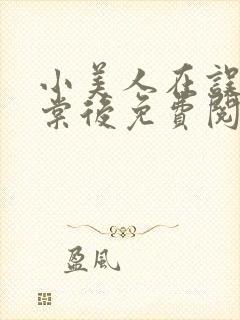 小美人在誤
棠後免費閱
盈風